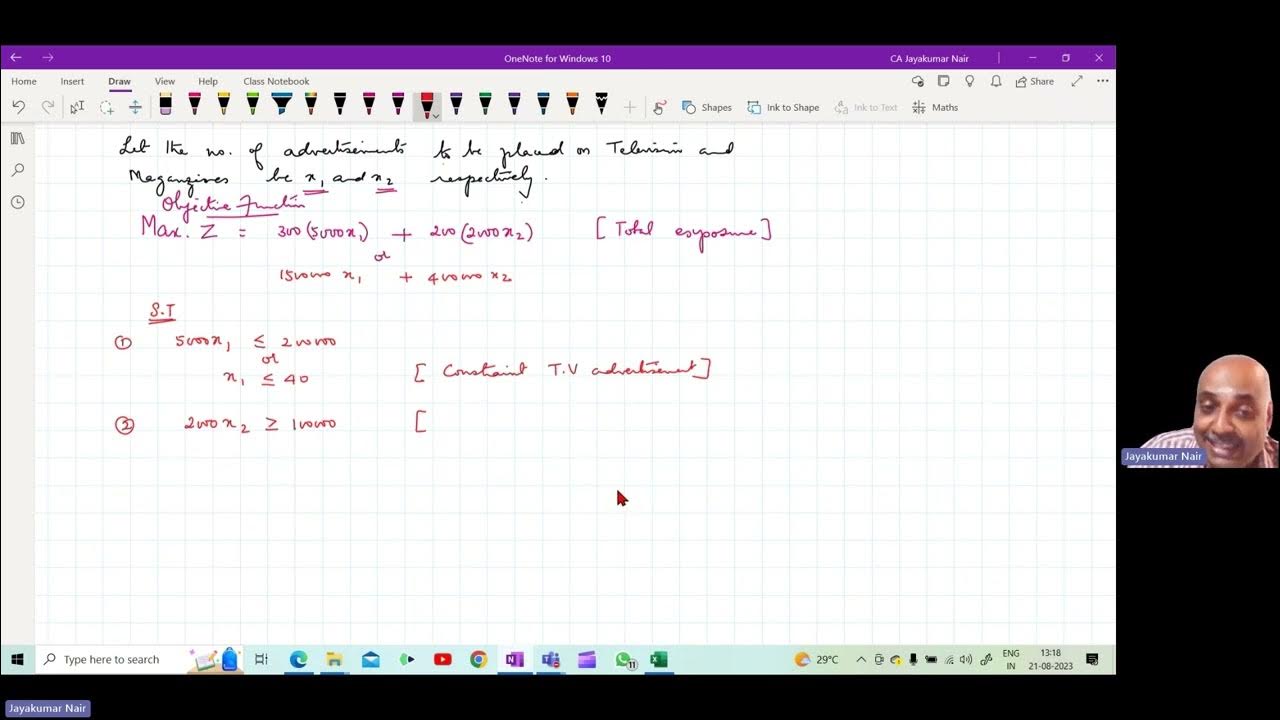 OneNote for Windows 10
CA Jayakumar Nair
Home Insert Draw View Help Class Notebook
Share
Shapes Ink to Shape Ink to Text Maths
Let the no. of advertisements to be placed on Television and
Magazines be x₁ and x₂ respectively.
Objective Function
Max. Z = 300 (5000x₁) + 200 (2000x₂) [Total exposure]
or
1500000 x₁ + 400000 x₂
S.T
① 5000x₁ ≤ 200000
or
x₁ ≤ 40 [Constraint T.V advertisement]
② 2000x₂ ≥ 10000 [
Jayakumar Nair
Type here to search
11
29°C
ENG
IN
13:18
21-08-2023
Jayakumar Nair